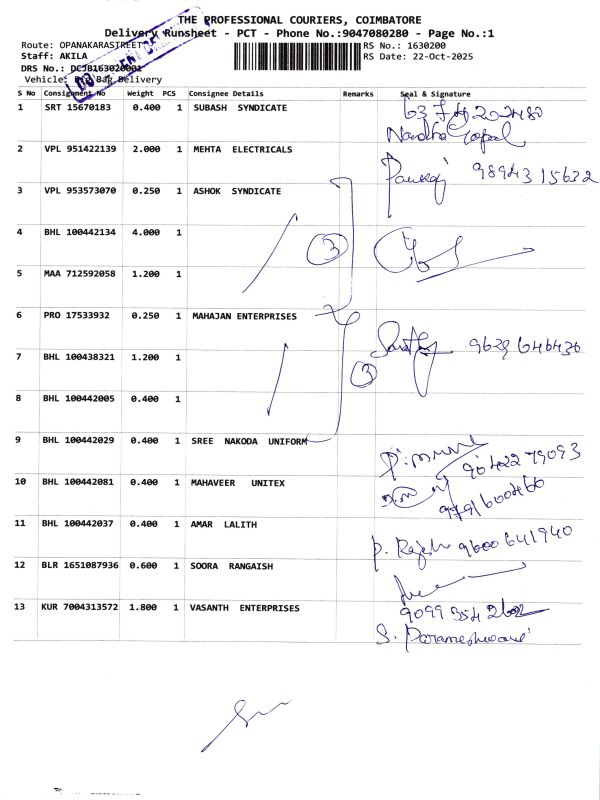 THE PROFESSIONAL COURIERS, COIMBATORE
Delivery Runsheet - PCT - Phone No.:9047080280 - Page No.:1
Route: OPANAKARASTREET
RS No.: 1630200
Staff: AKILA
RS Date: 22-Oct-2025
DRS No.:
Vehicle: Delivery
S No Consignment No Weight PCS Consignee Details Remarks Seal & Signature
1 SRT 15670183 0.400 1 SUBASH SYNDICATE
Nandha Gopal
2 VPL 951422139 2.000 1 MEHTA ELECTRICALS
Pankaj 9894315632
3 VPL 953573070 0.250 1 ASHOK SYNDICATE
3
4 BHL 100442134 4.000 1
5 MAA 712592058 1.200 1
6 PRO 17533932 0.250 1 MAHAJAN ENTERPRISES
9629646436
7 BHL 100438321 1.200 1
3
8 BHL 100442005 0.400 1
9 BHL 100442029 0.400 1 SREE NAKODA UNIFORM
9042279093
10 BHL 100442081 0.400 1 MAHAVEER UNITEX
9791600460
11 BHL 100442037 0.400 1 AMAR LALITH
P. Rajesh 9600641940
12 BLR 1651087936 0.600 1 SOORA RANGAISH
13 KUR 7004313572 1.800 1 VASANTH ENTERPRISES
S. Parameshwari